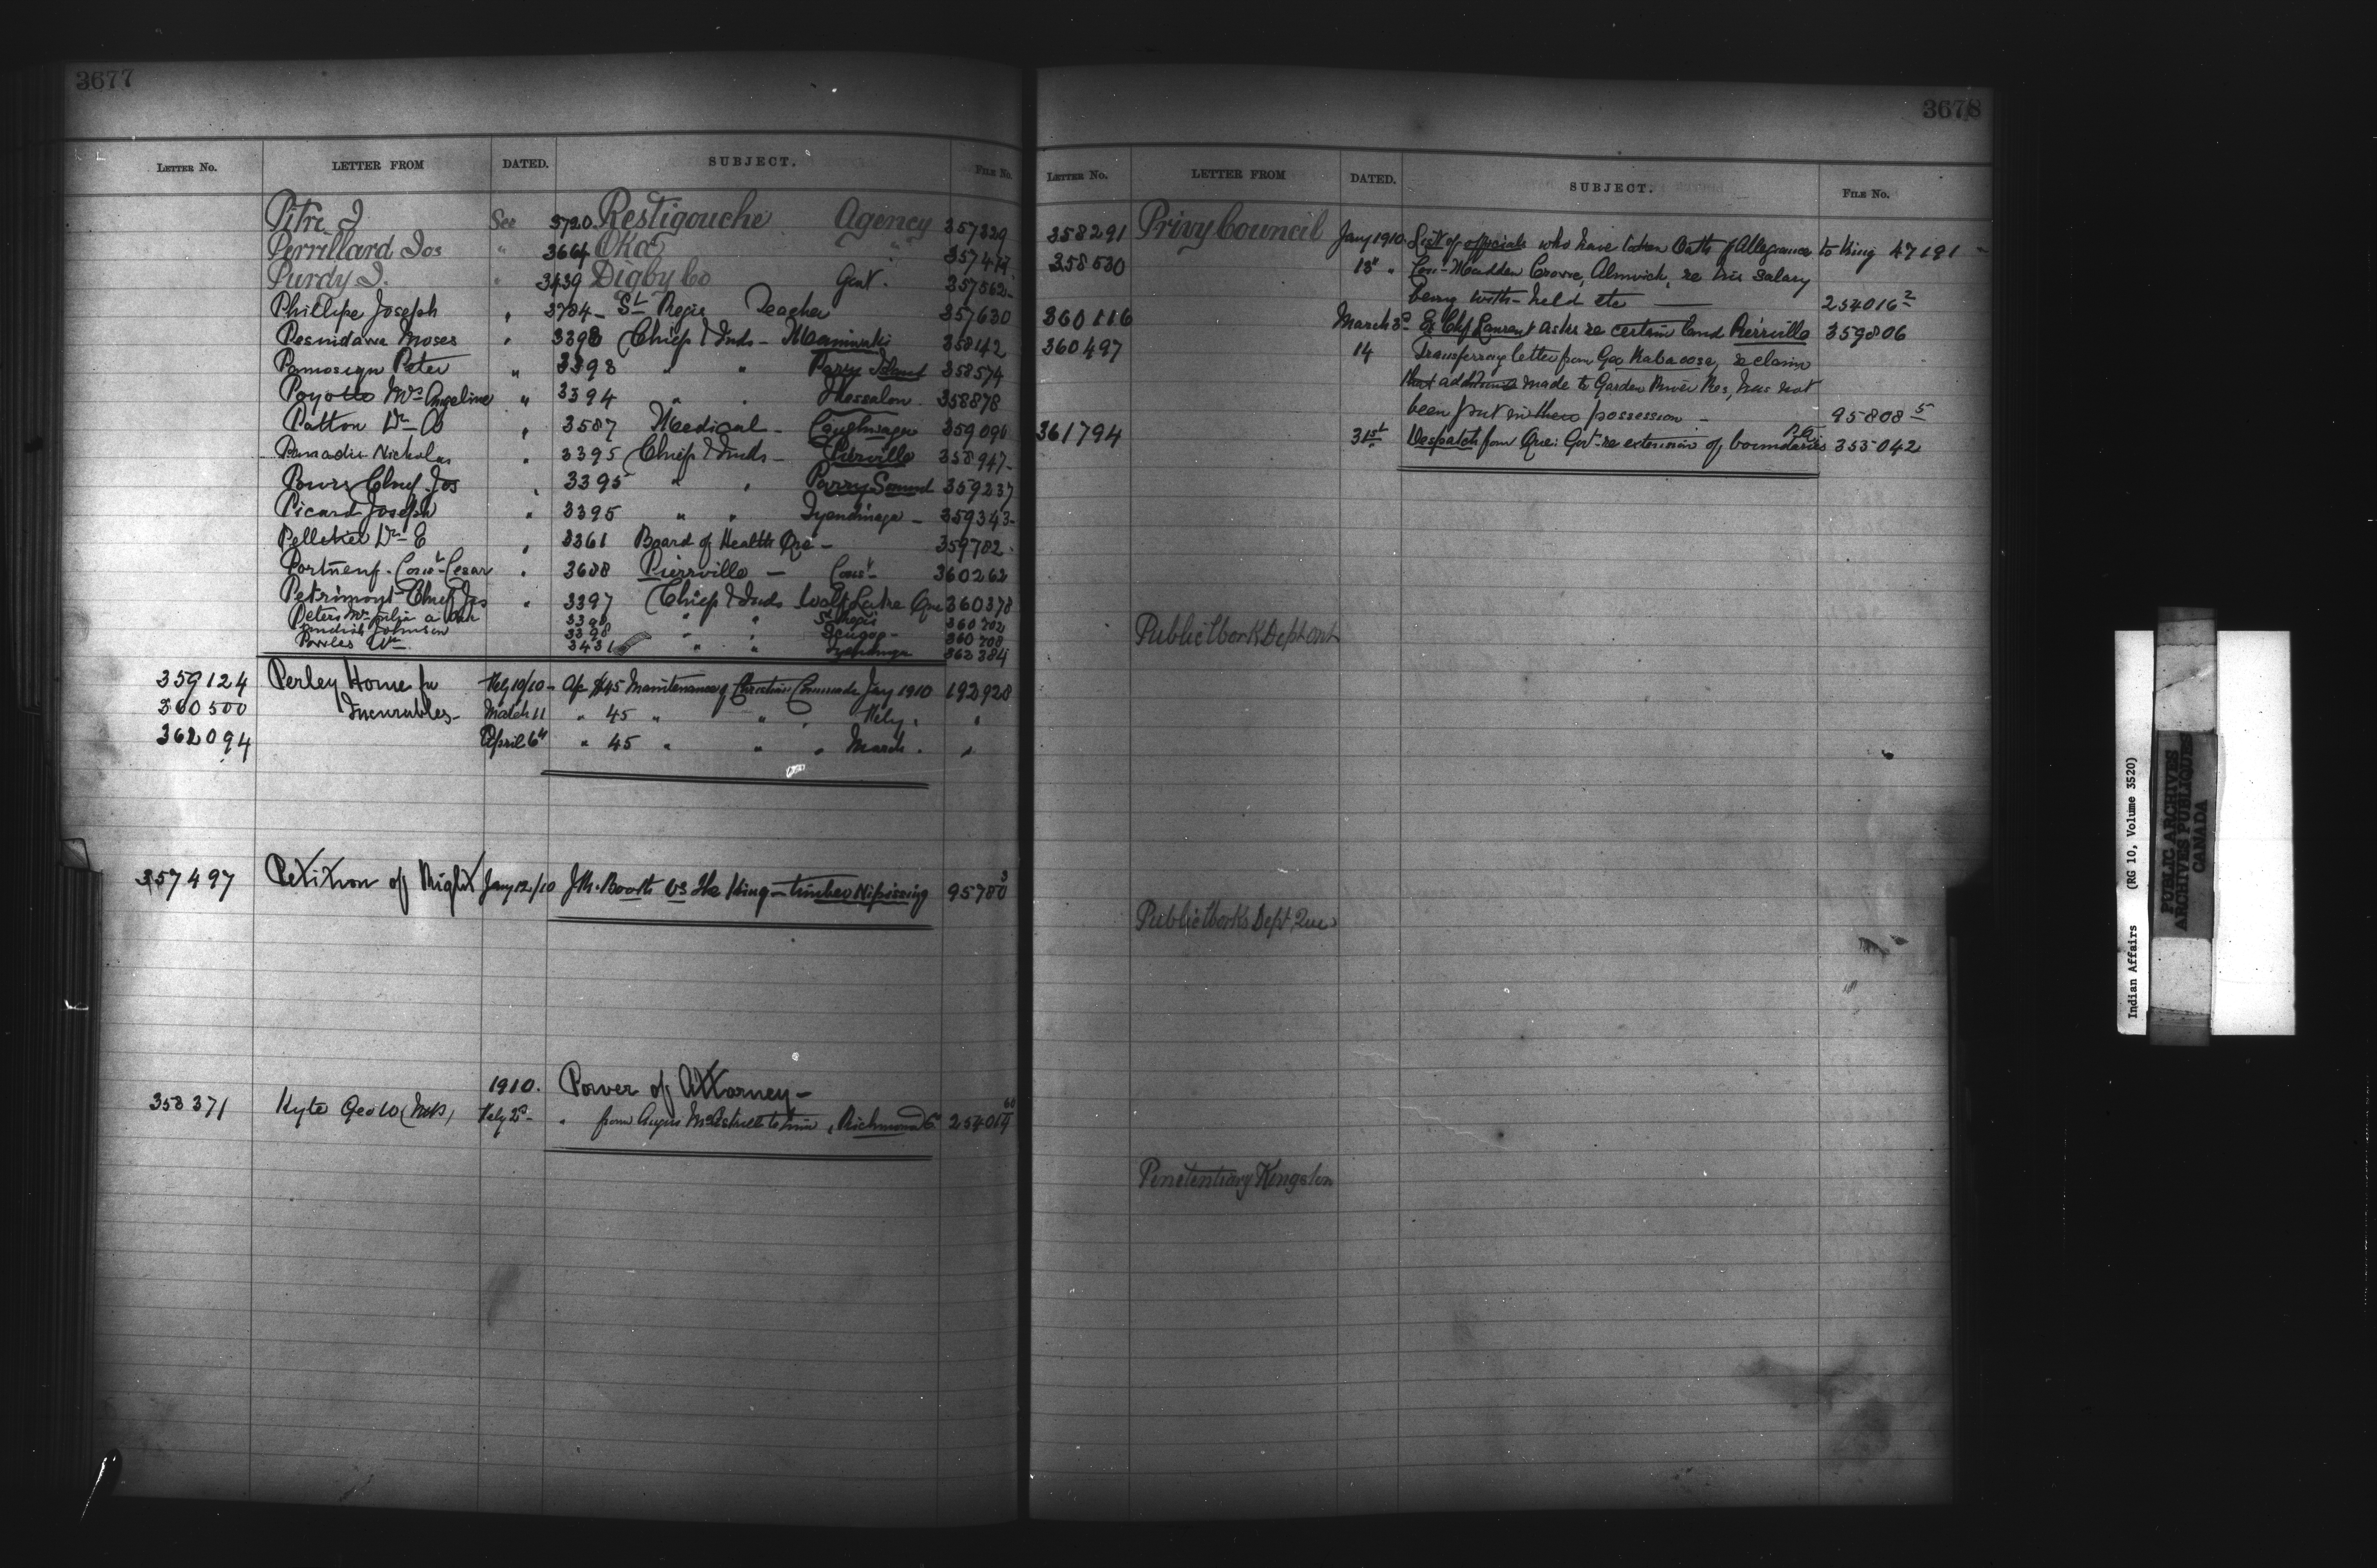 3677
LETTER No. LETTER FROM DATED. SUBJECT. FILE No.
Pitre J See 3720 Restigouche Agency 357329
Perrillard Jos " 3664 Oka " 357474
Purdy J. " 3439 Digby Co Genl. 357562
Phillipe Joseph " 3784 - St Regis Teacher 357630
Moses " 3398 Chiefs & Inds - Maniwaki 358142
Peter " 3398 " " Parry Island 358574
Payotte Mrs Angeline " 3394 " " Thessalon 358878
Patton Dr - 3587 Medical - Caughnawaga 359090
Panadis Nicholas " 3395 Chiefs & Inds - Pierville 358947
Powis Chief Jos " 3395 " " Parry Sound 359237
Picard Joseph " 3395 " " Tyendinaga - 359343
Pelletier Dr E " 3361 Board of Health Que - 359782
Portneuf - Cesar " 3688 Pierrville - 360262
Petrimont Chief Jos " 3397 Chiefs & Inds Wolf Lake Que 360378
Peters Mrs Julia St Regis 360702
Johnson 3398 " " 360708
Powles Wm 3431 " " 362384
359124 Perley Home for Feby 10/10 - Ap $45 Maintenance of Christian Jany 1910 192928
360500 Incurables - March 11 " 45 " " " Feby " "
362094 April 6th " 45 " " " March " "
357497 Petition of Right Jany 12/10 J.R. Booth vs The King - timber Nipissing 95780 3
1910. Power of Attorney -
358371 Kyte Geo W (M.P.) Feby 2d - " from Angus to him, Richmond Co 254014 60
3678
LETTER No. LETTER FROM DATED. SUBJECT. FILE No.
358291 Privy Council Jany 1910 List of officials who have taken Oath of Allegiance to King 47181
358530 18 " Madden Crowe, Alnwick, re his salary
being with-held etc 254016 2
360116 March 3d - Ex Chf Laurent asks re certain land Pierrville 359806
360497 14 Transferring letter from Geo Kabaoosa, re claim
that additions made to Garden River Res, has not
been put in their possession - 95808 5
361794 31st Despatch from Que: Govt re extension of boundaries P.Q. 355042
Public Work Dept Ont
Public Works Dept Que
Penetentiary Kingston
Indian Affairs (RG 10, Volume 3520)
PUBLIC ARCHIVES
ARCHIVES PUBLIQUES
CANADA